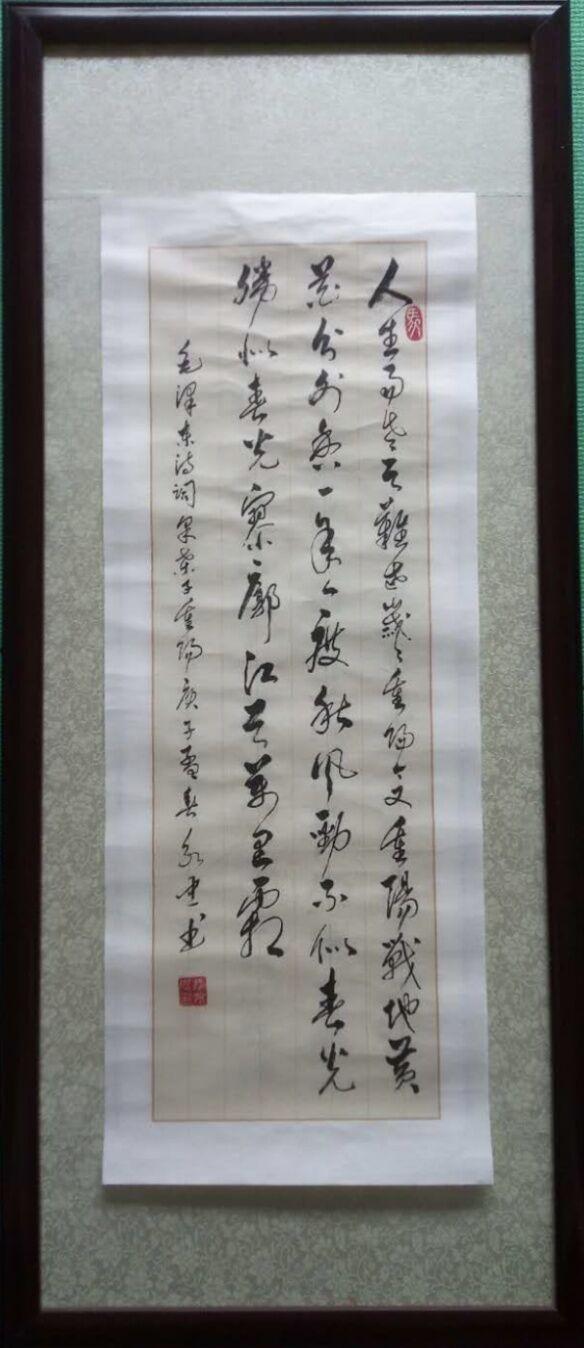 人生易老天難老歲々重阳今又重陽戰地黄
花分外香一年一度秋风勁不似春光
勝似春光寥廓江天萬里霜
毛泽东诗词采桑子重阳庚子孟春书